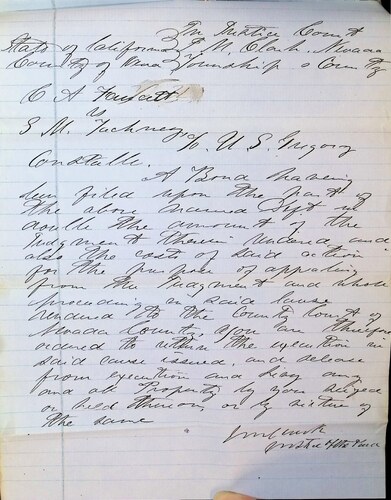 In Justice Court
State of California } J. M. Clark Nevada
County of Nevada } Township & County
C A Fawcett
vs
S M. Tuckney To U. S. Gregory
Constable.
A Bond having
been filed upon the part of
the above named Deft in
double the amount of the
Judgment therein rendered and
also the costs of said action
for the purpose of appealing
from the Judgment and whole
proceeding in said cause
rendered to the County Court of
Nevada County, you are therefore
ordered to return the execution in
said cause issued, and release
from execution and levy any
and all Property by you seized
or held thereon, or by virtue of
the same
J M Clark
Justice of the Peace